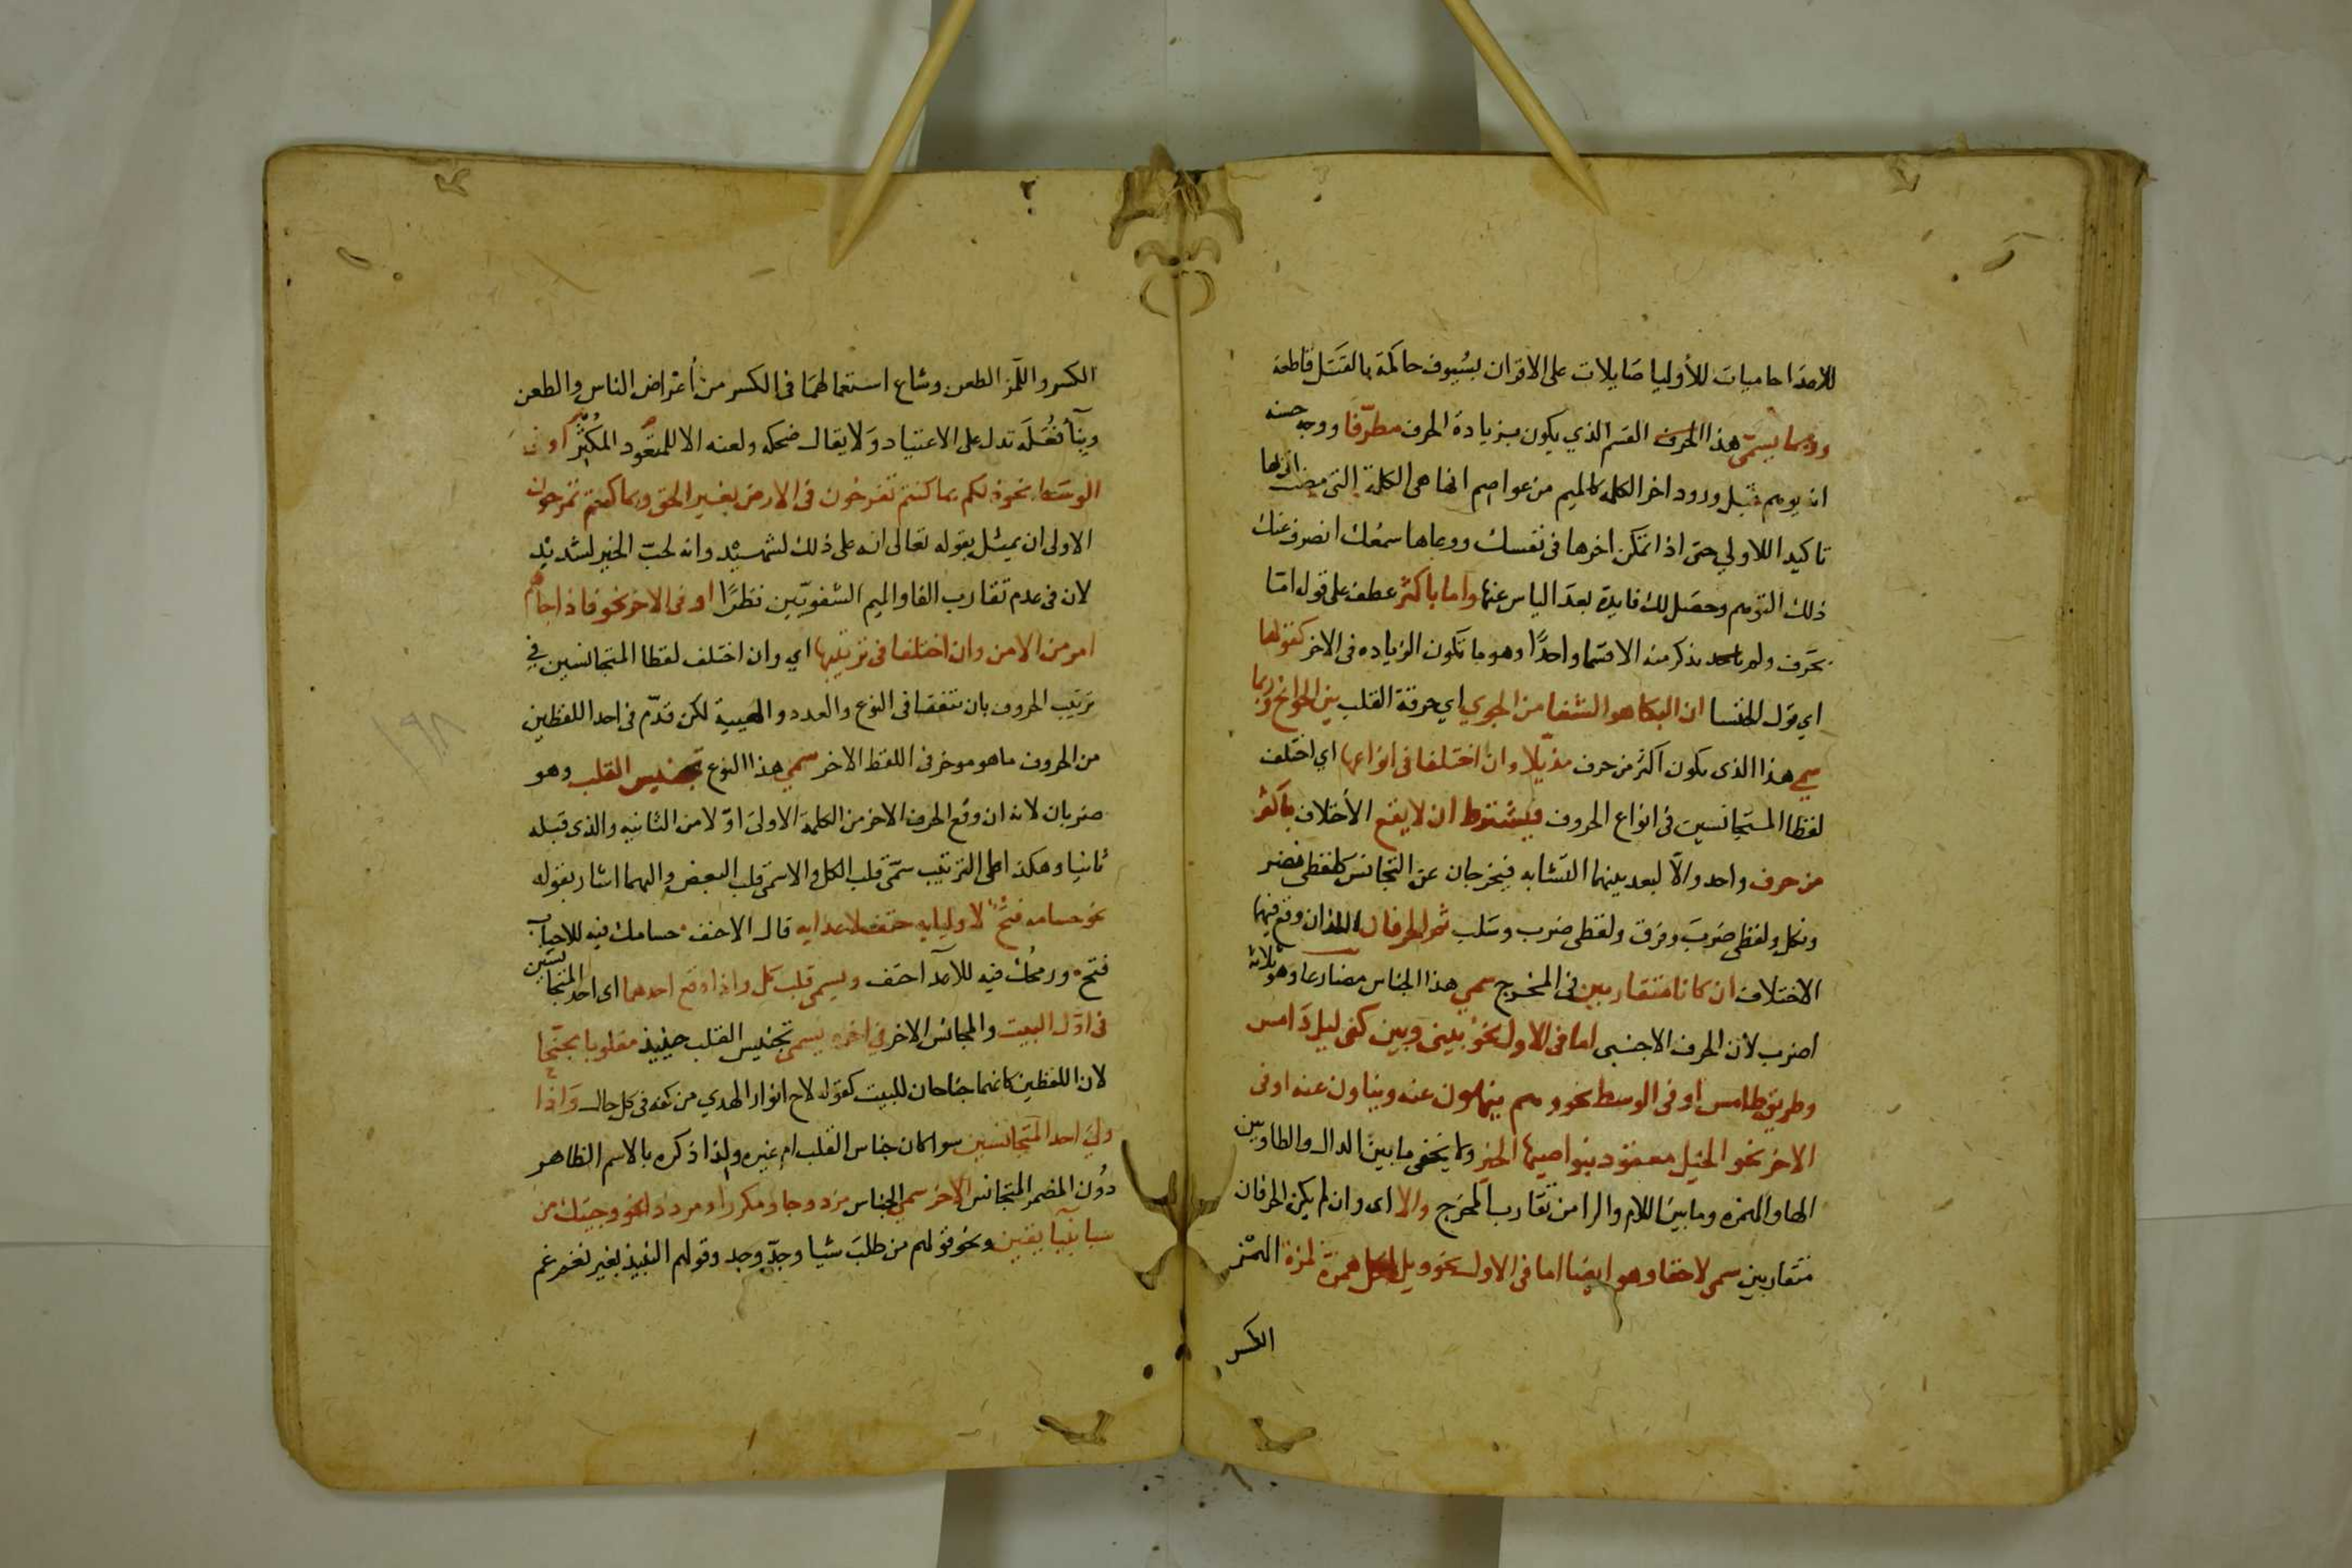 للاعدا حاميات للأوليا صايلات على الاقران بسيوف حاكمة بالقتل قاطعة
وربما يسمى هذا الحرف القسم الذي يكون بزيادة الحرف مطرفا ووجه حسنه
انه يوهم قبل ورود اخر الكلمه كالميم من عواصم انها هي الكلمة التي مضت انها
تاكيد اللاولي حتى اذا تمكن اخرها في نفسك ووعاها سمعك انصرف عنك
ذلك التوهم وحصل لك فايدة بعد الياس عنها واما باكثر عطف على قوله اما
بحرف ولم يذكر منه الا قسما واحدًا وهو ما تكون الزياده في الاخر كقولها
اي قول الخنسا ان البكا هو الشفا من الجوي اي حرقة القلب بين الجوانح وربما
سمي هذا الذي يكون اكثر من حرف مذيلا وان اختلفا في انواعها اي اختلف
لفظا المتجانسين في انواع الحروف فيشترط ان لا يقع الأختلاف باكثر
من حرف واحد والّا لبعد بينهما التشابه فيخرجان عن التجانس كلفظي نصر
ونكل ولفظي ضرب وفرق ولفظي ضرب وسلب ثم الحرفان اللذان وقع فيهما
الاختلاف ان كانا متقاربين في المخرج سمي هذا الجناس مضارعا وهو ثلاثة
اضرب لأن الحرف الاجنبي اما في الاول نحو بيني وبين كنى ليل دامس
وطريق طامس او في الوسط نحو وهم ينهون عنه وينأون عنه او في
الاخر نحو الخيل معقود بنواصيها الخير ولا يخفى ما بين الدال والطا وبين
الها والهمزه وما بين اللام والرا من تقارب المخرج والا اى وان لم يكن الحرفان
متقاربين سمي لاحقا وهو ايضا اما في الاول نحو ويل لكل همزة لمزة الهمز
الكسر
الكسر واللمز الطعن وشاع استعمالهما في الكسر من أعراض الناس والطعن
وبنآ فُعَلَه تدل على الاعتياد ولا يقال ضحكه ولعنه الا للمتعود المكثر او في
الوسط نحو ذلكم بما كنتم تفرحون في الارض بغير الحق وبما كنتم تمرحون
الاولى ان يمثل بقوله تعالى انه على ذلك لشهيد وانه لحب الخير لشديد
لان في عدم تقارب الفا والميم الشفويين نظرًا او في الاخر نحو فاذا جاهم
امر من الامن وان اختلفا في ترتيبها اي وان اختلف لفظا المتجانسين في
ترتيب الحروف بان تتفقا في النوع والعدد والهيية لكن قدّم في احد اللفظين
من الحروف ما هو موخر في اللفظ الاخر سمي هذا النوع تجنيس القلب وهو
ضربان لانه ان وقع الحرف الاخر من الكلمة الاولى اوّلا من الثانيه والذى قبله
ثانيا وهكذا على الترتيب سمى قلب الكل والا سمى قلب البعض واليهما اشار بقوله
نحو حسامه فتح لاوليايه حتف لاعدايه قال الاحنف حسامك فيه للاحباب
فتح ورمحك فيه للاعدآ حتف ويسمى قلب كل واذا وقع احدهما اى احد المتجانسين
في اوّل البيت والمجانس الاخر في اخره يسمى تجنيس القلب حينيذ مقلوبا مجنحا
لان اللفظين كانهما جناحان للبيت كقوله لاح انوار الهدي من كفه في كل حال واذا
ولي احد المتجانسين سوا كان جناس القلب ام غيره ولذا ذكره بالاسم الظاهر
دون المضمر المتجانس الاخر سمي الجناس مزدوجا ومكررا ومرددا نحو وجيتك من
سبا بنبأ يقين ونحو قولهم من طلب شيا وجدّ وجد وقولهم النبيذ بغير نغم غم